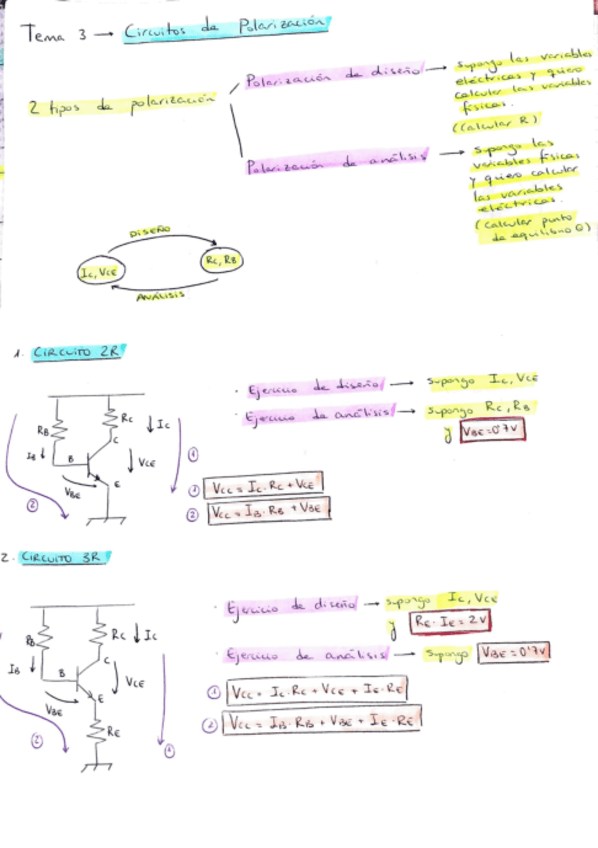 Tema 3 → Circuitos de Polarización
2 tipos de polarización
Polarización de diseño → supongo las variables
eléctricas y quiero
calcular las variables
físicas.
(Calcular R)
Polarización de análisis → supongo las
variables físicas
y quiero calcular
las variables
eléctricas.
(calcular punto
de equilibrio Q)
DISEÑO
Ic, VCE
Rc, RB
ANÁLISIS
1. CIRCUITO 2R
· Ejercicio de diseño → supongo Ic, VCE
· Ejercicio de análisis → supongo Rc, RB
y VBE=0'7V
RB
Rc ↓ Ic
C
IB ↓
B
↓ VCE
E
VBE
①
②
① Vcc = Ic·Rc + VCE
② Vcc = IB·RB + VBE
2. CIRCUITO 3R
· Ejercicio de diseño → supongo Ic, VCE
y RE·IE = 2V
· Ejercicio de análisis → supongo VBE = 0'7V
RB
Rc ↓ Ic
C
IB ↓
B
VCE
E
VBE
RE
②
①
① Vcc = Ic·Rc + VCE + IE·RE
② Vcc = IB·RB + VBE + IE·RE